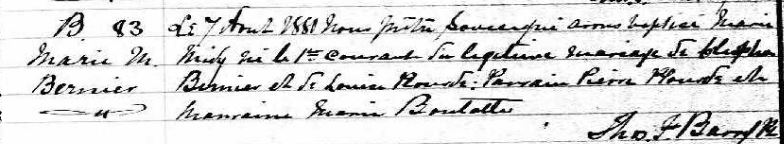 B. 83 Le 7 Aout 1881 Nous prêtre soussigné avons baptisé Marie
Marie M. né le 1er courant du légitime mariage de Cléophas
Bernier Bernier et de Louise Plourde; Parrain Pierre Plourde et
Marraine Marie Boutotte
Thos. F. Barry